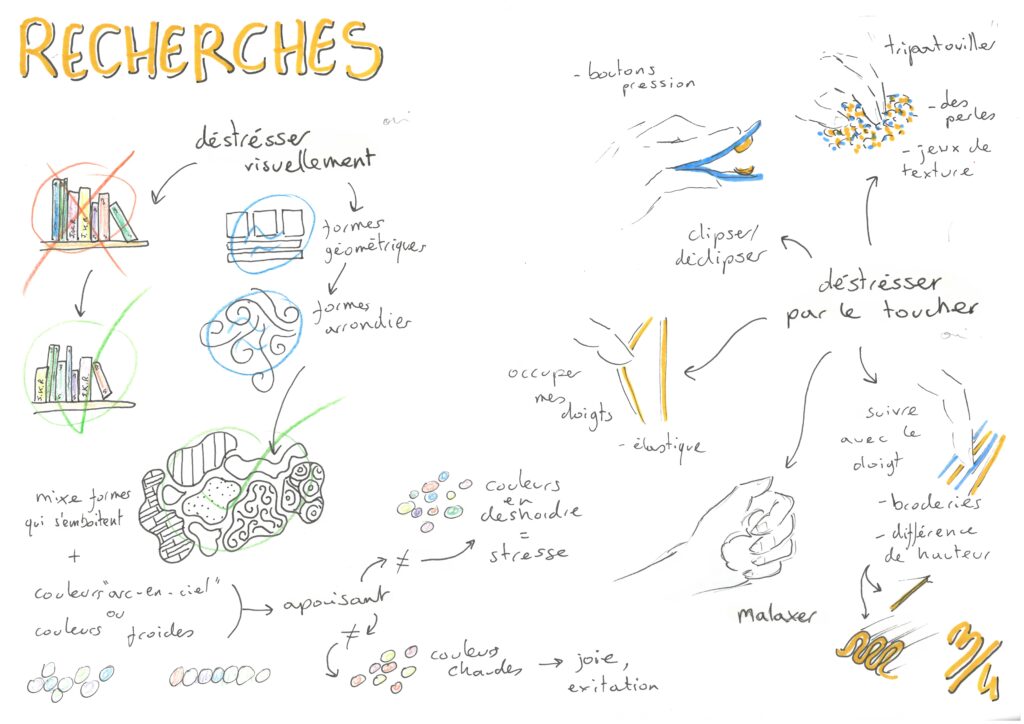 RECHERCHES
déstrésser
visuellement
oui
formes
géométriques
formes
arrondier
J.K.R
J.K.R
mixe formes
qui s'emboîtent
+
couleurs "arc-en-ciel"
ou
couleurs froides
apaisant
≠
couleurs
en
deshordre
=
stresse
≠
couleurs
chaudes
joie,
exitation
- boutons
pression
tripatouiller
- des
perles
- jeux de
texture
clipser/
déclipser
déstrésser
par le toucher
oui
occuper
mes
doigts
- élastique
malaxer
suivre
avec le
doigt
- broderies
- différence
de hauteur
3/4